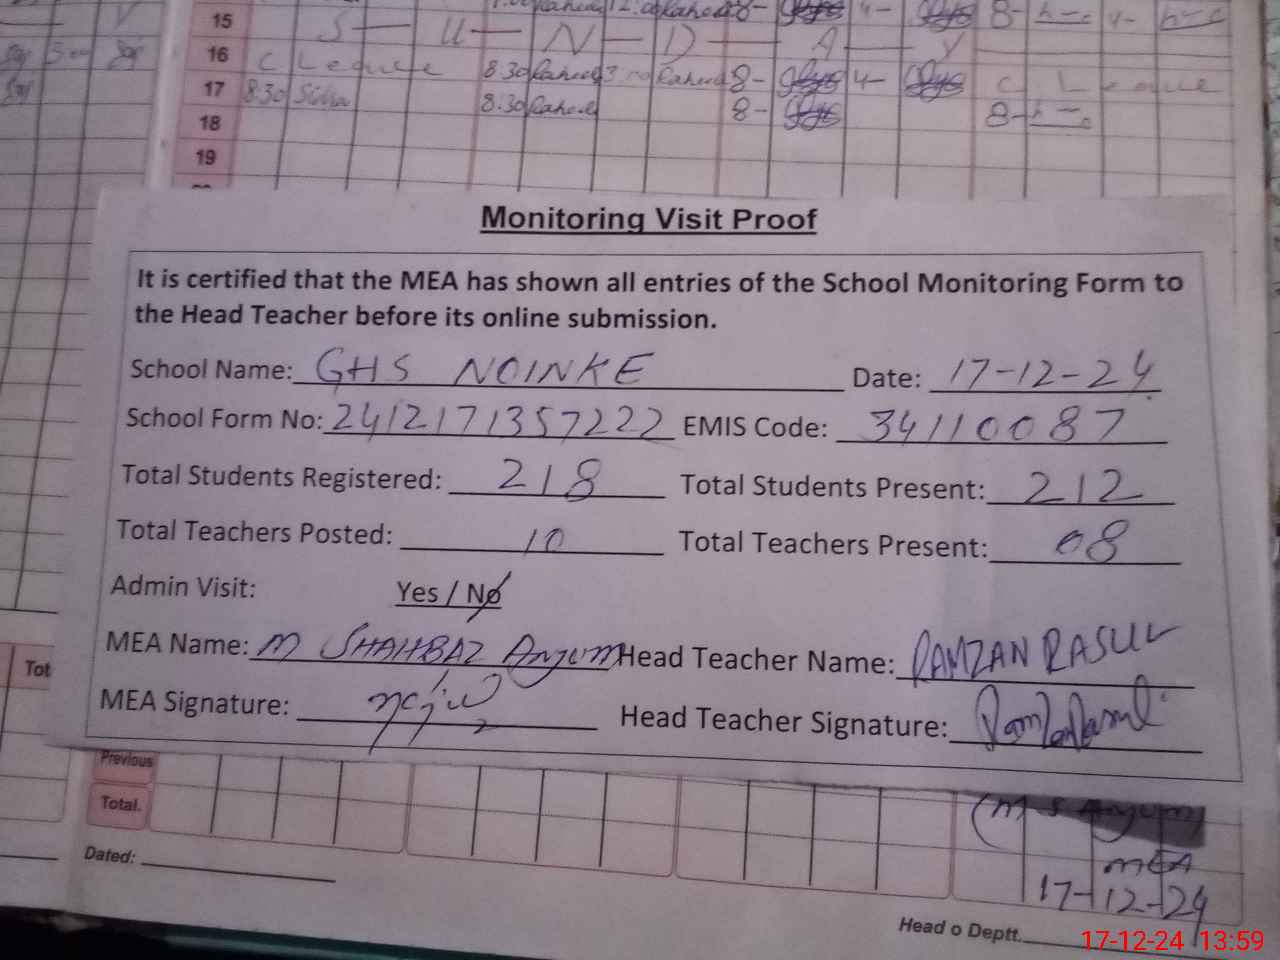 15
S — U — N — D — A — Y
16
C Leave 8.30 Raheel 8- 4- C Leave
17 8:30
8:30 Raheel 8- 8-
18
19
Monitoring Visit Proof
It is certified that the MEA has shown all entries of the School Monitoring Form to
the Head Teacher before its online submission.
School Name: GHS NOINKE Date: 17-12-24
School Form No: 2412171357222 EMIS Code: 34110087
Total Students Registered: 218 Total Students Present: 212
Total Teachers Posted: 10 Total Teachers Present: 08
Admin Visit: Yes / No
MEA Name: M SHAHBAZ Anjum Head Teacher Name: RAMZAN RASUL
MEA Signature: Head Teacher Signature:
Tot
Previous
Total.
(M S Anjum)
MEA
17-12-24
Dated:
Head o Deptt.
17-12-24 13:59